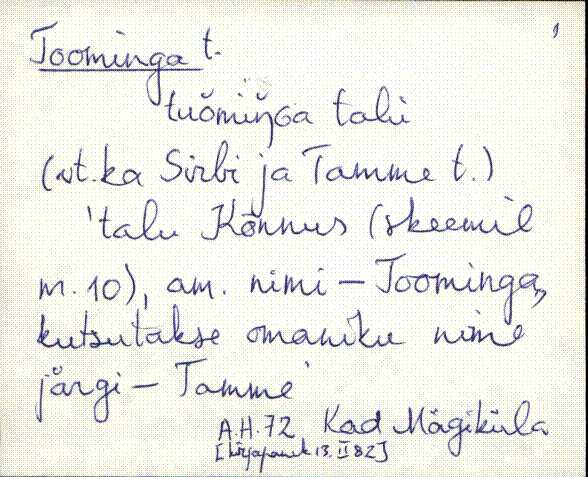 Toominga t.
tuŏmiŋ̆ɢa talu
(vt. ka Sirbi ja Tamme t.)
'talu Kõnnus (skeemil
m. 10), am. nimi – Toominga,
kutsutakse omaniku nime
järgi – Tamme'
A.H. 72 Kad Mägiküla
[kirjapanek 13. II 82]